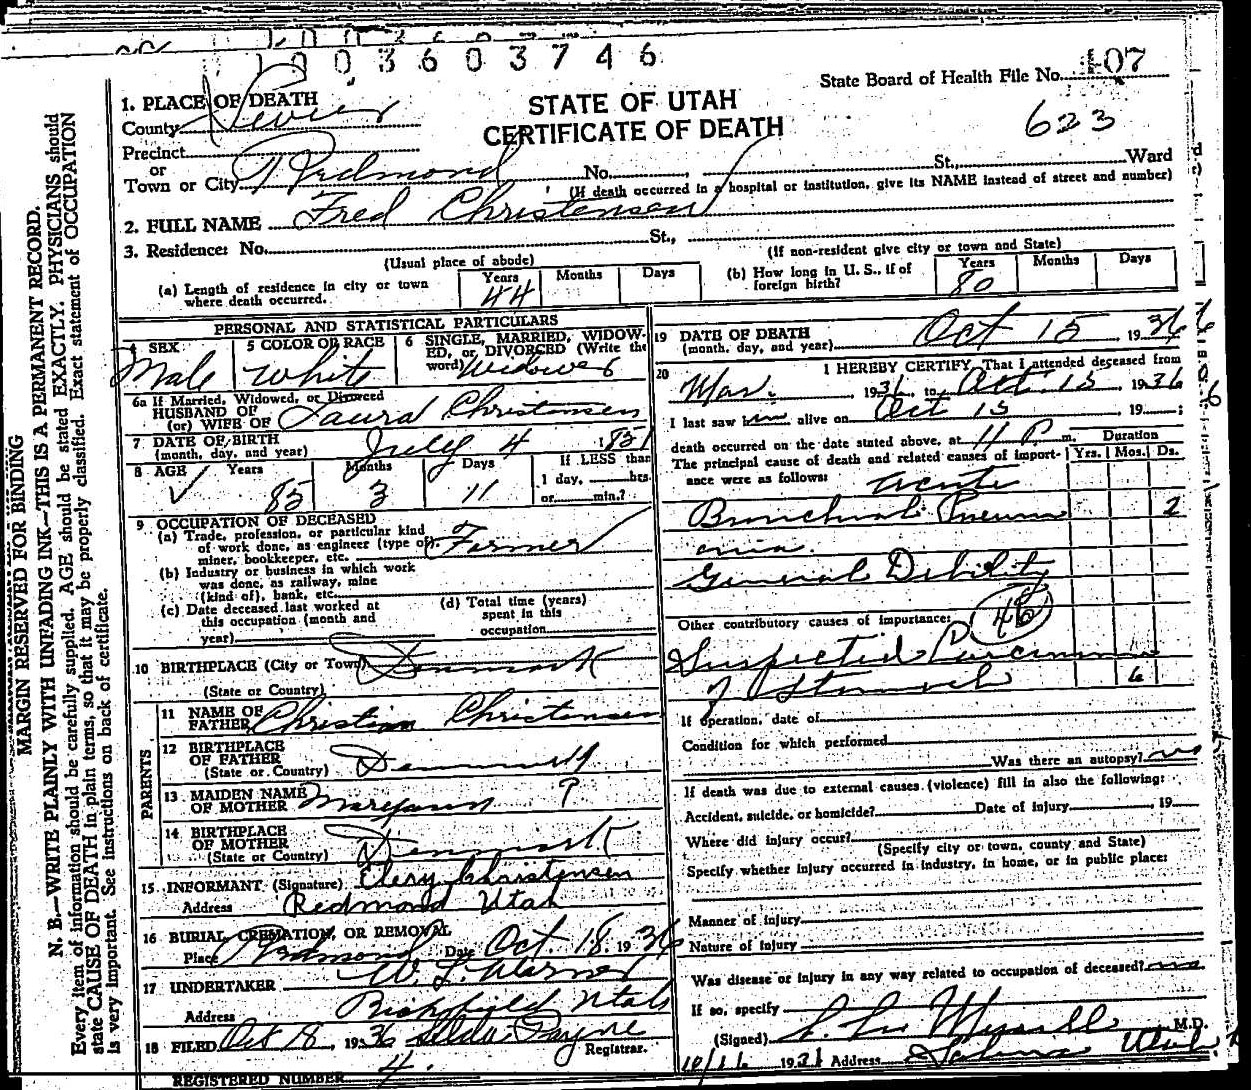 1003603746
State Board of Health File No. 107
STATE OF UTAH
CERTIFICATE OF DEATH
623
1. PLACE OF DEATH
County Sevier
Precinct
or
Town or City Redmond No. St., Ward
(If death occurred in a hospital or institution, give its NAME instead of street and number)
2. FULL NAME Fred Christensen
3. Residence: No. St.,
(Usual place of abode) (If non-resident give city or town and State)
(a) Length of residence in city or town where death occurred. Years 44 Months Days
(b) How long in U. S., if of foreign birth? Years 80 Months Days
MARGIN RESERVED FOR BINDING
N. B.—WRITE PLAINLY WITH UNFADING INK—THIS IS A PERMANENT RECORD.
Every item of information should be carefully supplied. AGE should be stated EXACTLY. PHYSICIANS should
state CAUSE OF DEATH in plain terms, so that it may be properly classified. Exact statement of OCCUPATION
is very important. See instructions on back of certificate.
PERSONAL AND STATISTICAL PARTICULARS
4 SEX Male
5 COLOR OR RACE White
6 SINGLE, MARRIED, WIDOW-
ED, or DIVORCED (Write the
word) Widower
6a If Married, Widowed, or Divorced
HUSBAND OF
(or) WIFE OF Laura Christensen
7 DATE OF BIRTH
(month, day, and year) July 4 1851
8 AGE Years 85 Months 3 Days 11
If LESS than
1 day, hrs.
or min.?
9 OCCUPATION OF DECEASED
(a) Trade, profession, or particular kind
of work done, as engineer (type of), Farmer
miner, bookkeeper, etc.
(b) Industry or business in which work
was done, as railway, mine
(kind of), bank, etc.
(c) Date deceased last worked at
this occupation (month and
year)
(d) Total time (years)
spent in this
occupation
10 BIRTHPLACE (City or Town) Denmark
(State or Country)
PARENTS
11 NAME OF
FATHER Christian Christensen
12 BIRTHPLACE
OF FATHER
(State or Country) Denmark
13 MAIDEN NAME
OF MOTHER Maryann ?
14 BIRTHPLACE
OF MOTHER
(State or Country) Denmark
15 INFORMANT (Signature) Elery Christensen
Address Redmond Utah
16 BURIAL, CREMATION, OR REMOVAL
Place Redmond Date Oct. 18, 1936
17 UNDERTAKER W. L. Warner
Address Richfield Utah
18 FILED Oct 18, 1936 Selda Payne
Registrar.
REGISTERED NUMBER 4.
19 DATE OF DEATH
(month, day, and year) Oct 15 1936
20 I HEREBY CERTIFY, That I attended deceased from
Mar. 1936, to Oct 15 1936
I last saw him alive on Oct 15 19 ;
death occurred on the date stated above, at 11 P. m.
The principal cause of death and related causes of import-
ance were as follows:
Duration
Yrs. Mos. Ds.
Acute
Bronchial Pneum 2
onia.
General Debility
Other contributory causes of importance: 46
Suspected Carcinoma
of Stomach 6
If operation, date of
Condition for which performed
Was there an autopsy? no
If death was due to external causes (violence) fill in also the following:
Accident, suicide, or homicide? Date of injury , 19
Where did injury occur?
(Specify city or town, county and State)
Specify whether injury occurred in industry, in home, or in public place:
Manner of injury
Nature of injury
Was disease or injury in any way related to occupation of deceased? no
If so, specify
(Signed) M.D.
1931 Address Salina Utah